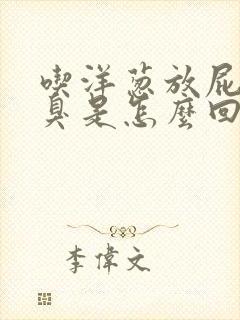 喫洋葱放屁
臭是怎麼回
李偉文